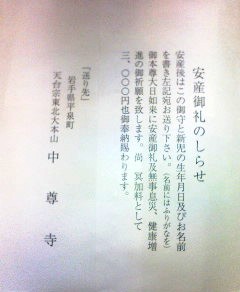 安産御礼のしらせ
安産後はこの御守と新児の生年月日及びお名前
を書き左記宛お送り下さい。(名前にはふりがなを)
御本尊大日如来に安産御礼及無事息災、健康増
進の御祈願を致します。尚、冥加料として
三、〇〇〇円也御奉納賜わります。
「送り先」
岩手県平泉町
天台宗東北大本山 中尊寺